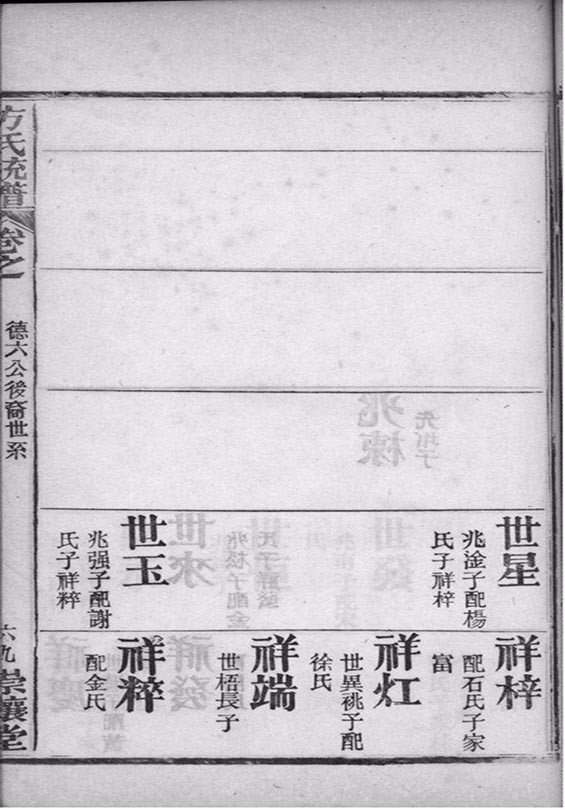 世星
兆淦子配楊
氏子祥梓
世玉
兆强子配謝
氏子祥粹
祥梓
配石氏子家
富
祥灴
世異祧子配
徐氏
祥端
世梧長子
祥粹
配金氏
方氏統譜
卷之一
德六公後裔世系
六九
崇讓堂